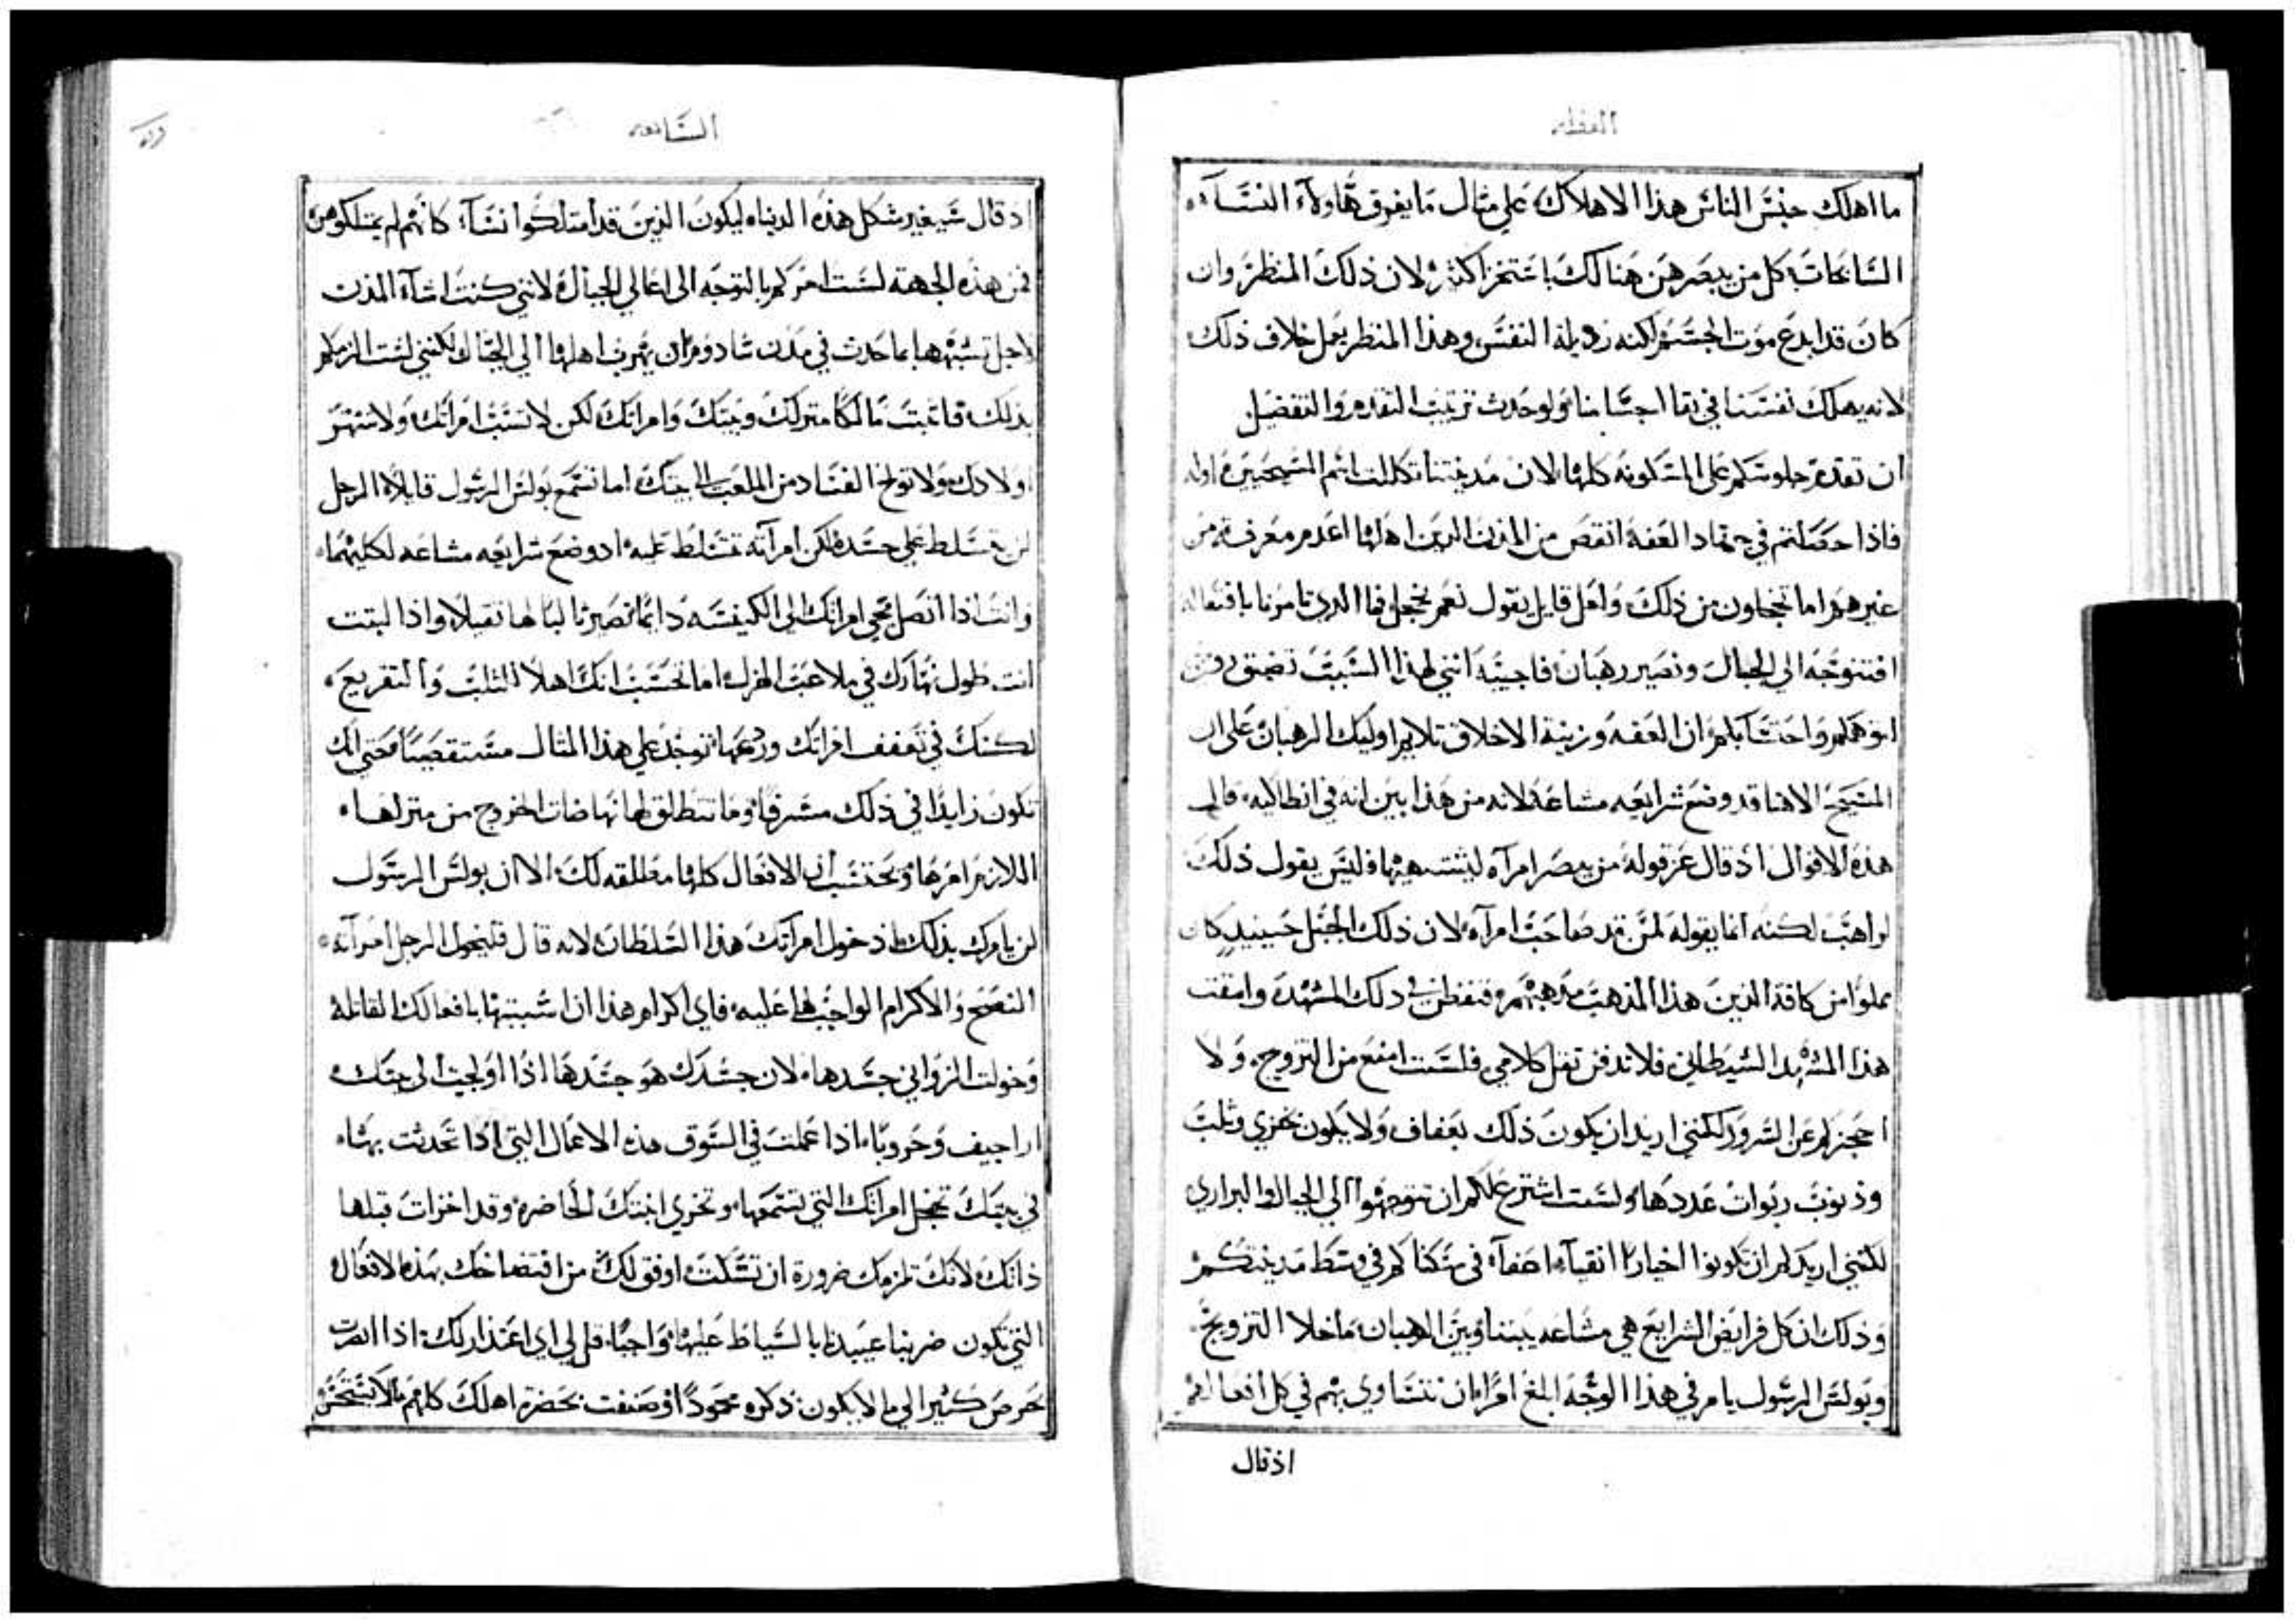 العظه
ما اهلك جنس الناس هذا الاهلاك على مثال ما يغرق هاولاء النساء
السابحات كل من يبصرهن هنالك باعتمزاكثر لان ذلك المنظر وان
كان قد ابدع موت الجسم لكنه رذيلة النفس وهذا المنظر يعمل خلاف ذلك
لانه يهلك نفسنا في بقا اجسامنا ولو حدث ترتيب التقدم والتفضيل
ان تقدم جلوسكم على المسكونه كلها لان مدينتنا تكللت باسم المسيحيين اولا
فاذا حصلتم في جهاد العفه انقص من المدن الذين اهلها اعدم معرفة من
غيرهم اما تخجلون من ذلك ولعل قايل يقول نعم نخجل فما الذي تامرنا بافتعاله
افنتوجه الى الجبال ونصير رهبان فاجيبه انني لهذا السبب تضيق
ان العفه وزينة الاخلاق تلايم اوليك الرهبان على ان
المسيح الاهنا قد وضع شرايعه مشاعه لانه من هذا يبين انه في انطاكيه قال
هذه الاقوال اذ قال عز قوله من يبصر امرآه ليشتهيها وليس يقول ذلك
لراهب لكنه انما يقوله لمن قد صاحب امرآه لان ذلك الجبل حينيد كان
مملوا من كافة الذين هذا المذهب مذهبهم فتفطن في ذلك المشهد وامقت
هذا المشهد الشيطاني فلا تدفن ثقل كلامي فلست امنع من التزوج ولا
احجز لهم عن السرور لكنني اريد ان يكون ذلك بعفاف ولا يكون بخزي وثلب
وذنوب ربوات عددها ولست اشترع عليكم ان تتوجهوا الى الجبال والبراري
لكنني اريد لهم ان تكونوا اخيارا انقياء اعفآء في سكناكم في وسط مدينتكم
وذلك ان كل فرايض الشرايع هي مشاعه بيننا وبين الرهبان ما خلا التزويج
وبولس الرسول يامر في هذا الوجه ابلغ امرا ان نتساوي بهم في كل افعالهم
اذ قال
السابعه
اذ قال سيغير شكل هذه الدنيا ليكون الذين قد امتلكوا نسآء كانهم لم يمتلكوهن
فمن هذه الجهه لست امركم بالتوجه الى اعالي الجبال لانني كنت اشآء المدن
لاجل تشبهها بما حدث في مدن سادوم ان يهرب اهلها الى الجبال لكنني لست الزمكم
بذلك فاثبت مالكا منزلك وبيتك وامراتك لكن لا تسب امراتك ولا تنتهر
اولادك ولا تولج الفساد من الملعب الى بيتك اما تسمع بولس الرسول قايلا الرجل
لن يتسلط على جسده لكن امرآته تتسلط عليه اد وضع شرايعه مشاعه لكليهما
وانت اذا اتصل مجي امراتك الى الكنيسه دايما تصير ثالبا لها ثقيلا واذا لبتت
انت طول نهارك في ملاعب الهزل اما تحسب انك اهلا للثلب والتقريع
لكنك في تعفف امراتك وردعها توجد على هذا المثال مستقصيا حتى انك
تكون زايدا في ذلك مسرفا وما تنطلق لها نهاضات الخروج من منزلها
اللازم امرها وتحتسب ان الافعال كلها مطلقه لك الا ان بولس الرسول
لن يامرك بذلك اذ خول امرآتك هذا السلطان لانه قال فليخول الرجل امرآته
النصح والاكرام الواجب لها عليه فاي اكرام هذا ان اشببتها بافعالك القاتله
وخولت الزواني جسدها لان جسدك هو جسدها اذا اولجت الى بيتك
اراجيف وحروبا اذا عملت في السوق هذه الاعمال التي اذا تحدثت بها
في بيتك تخجل امراتك التي تسمعها وتخزي ابنتك الحاضره وقد اخزات قبلها
ذاتك لانك تلزمك ضرورة ان تسكت اوفق لك من افتضاحك بهذه الافعال
التي يكون ضربنا عبيدنا بالسياط عليها واجبا قل لي اي اعتذار لك اذا ابصرت
بحرص كثير الى ما لا يكون ذكره محمودا وصنفت بحضرة اهلك كلهم ما لا يستحسن